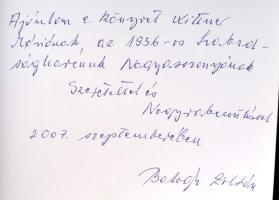 Ajánlom e könyvet Wittner
Máriának, az 1956-os Szabad-
ságharcunk Nagyasszonyának
Szeretettel és
Nagyrabecsüléssel
2007. szeptemberében
Balogh Zoltán